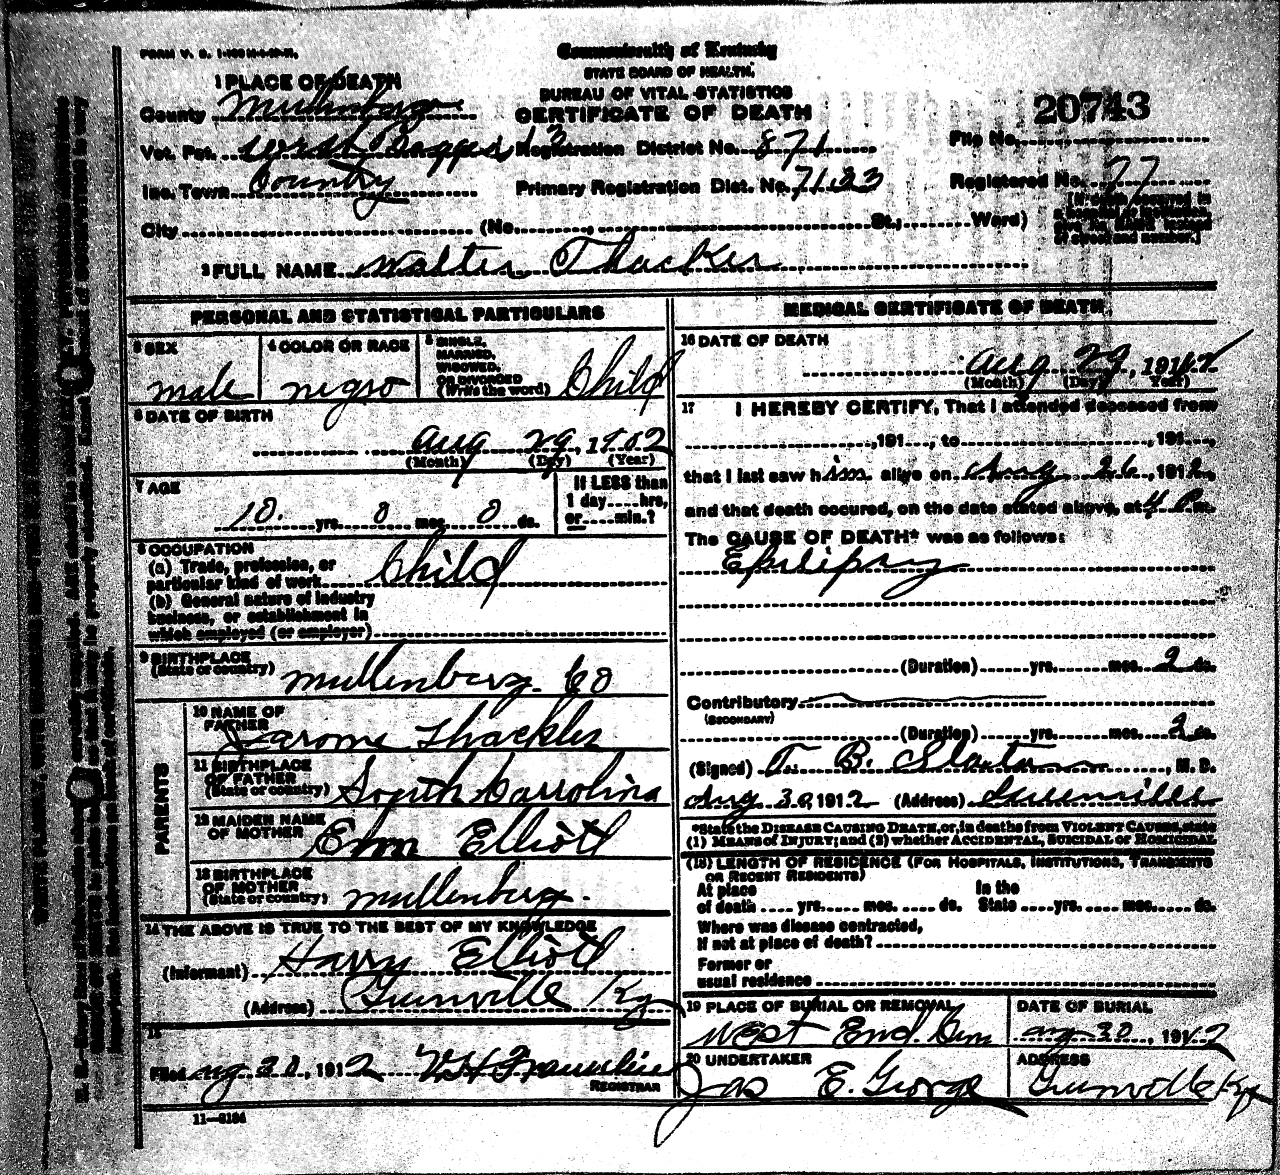 FORM V. S.
Commonwealth of Kentucky
STATE BOARD OF HEALTH.
BUREAU OF VITAL STATISTICS
CERTIFICATE OF DEATH
1 PLACE OF DEATH
20743
County
File No.
Vot. Pct. 13 Registration District No. 871
Inc. Town Country Primary Registration Dist. No. 7133 Registered No. 77
City (No. , St.; Ward)
[If death occurred in a hospital or institution give its NAME instead of street and number.]
2 FULL NAME Walter Thacker
PERSONAL AND STATISTICAL PARTICULARS
3 SEX male
4 COLOR OR RACE negro
5 SINGLE, MARRIED, WIDOWED, OR DIVORCED (Write the word) Child
6 DATE OF BIRTH
Aug 29, 1902
(Month) (Day) (Year)
7 AGE
10. yrs. 0 mos. 0 ds.
If LESS than 1 day....hrs, or....min.?
8 OCCUPATION
(a) Trade, profession, or
particular kind of work Child
(b) General nature of industry
business, or establishment in
which employed (or employer)
9 BIRTHPLACE
(State or country) Mullenberg. Co
PARENTS
10 NAME OF FATHER Jarome Thackler
11 BIRTHPLACE OF FATHER
(State or country) South Carrolina
12 MAIDEN NAME OF MOTHER Elliott
13 BIRTHPLACE OF MOTHER
(State or country) Mullenberg.
14 THE ABOVE IS TRUE TO THE BEST OF MY KNOWLEDGE
(Informant) Harry Elliott
(Address) Greenville Ky
15
Filed Aug 30, 1912
REGISTRAR
11—6184
MEDICAL CERTIFICATE OF DEATH
16 DATE OF DEATH
Aug 29, 1912
(Month) (Day) (Year)
17 I HEREBY CERTIFY, That I attended deceased from
, 191 , to , 191 ,
that I last saw him alive on Aug 26, 1912,
and that death occured, on the date stated above, at 4 P.m.
The CAUSE OF DEATH* was as follows:
Epilipsy
(Duration) yrs. mos. 2 ds.
Contributory
(SECONDARY)
(Duration) yrs. mos. 2 ds.
(Signed) T. B. Slaton, M. D.
Aug 30, 1912 (Address) Greenville
*State the DISEASE CAUSING DEATH, or, in deaths from VIOLENT CAUSES, state
(1) MEANS OF INJURY; and (2) whether ACCIDENTAL, SUICIDAL or HOMICIDAL
(18) LENGTH OF RESIDENCE (FOR HOSPITALS, INSTITUTIONS, TRANSIENTS
OR RECENT RESIDENTS)
At place In the
of death yrs. mos. ds. State yrs. mos. ds.
Where was disease contracted,
If not at place of death?
Former or
usual residence
19 PLACE OF BURIAL OR REMOVAL DATE OF BURIAL
West End. Aug 30, 1912
20 UNDERTAKER ADDRESS
Jas E. George Greenville Ky